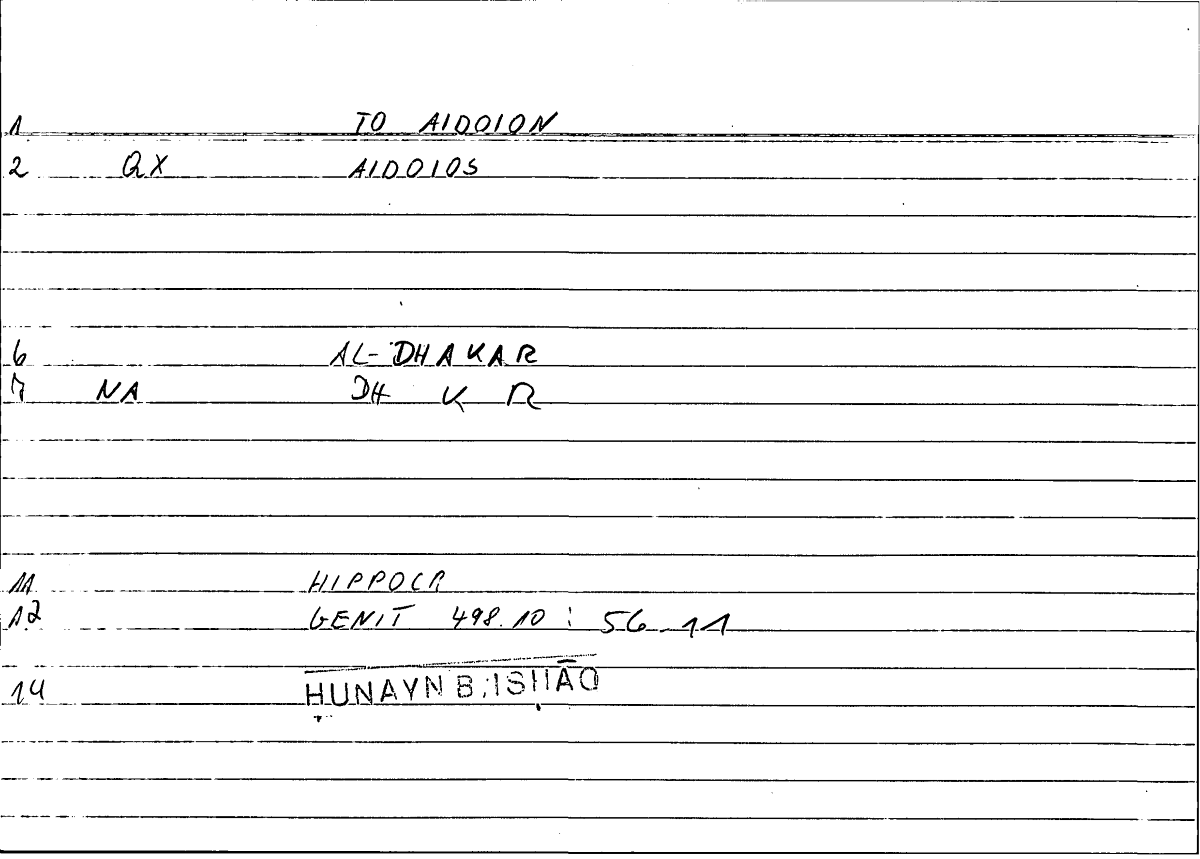 1 TO AIDOION
2 QX AIDOIOS
6 AL-DHAKAR
7 NA DH K R
11 HIPPOCR
12 GENIT 498.10 : 56.11
14 ḤUNAYN B. ISḤĀQ